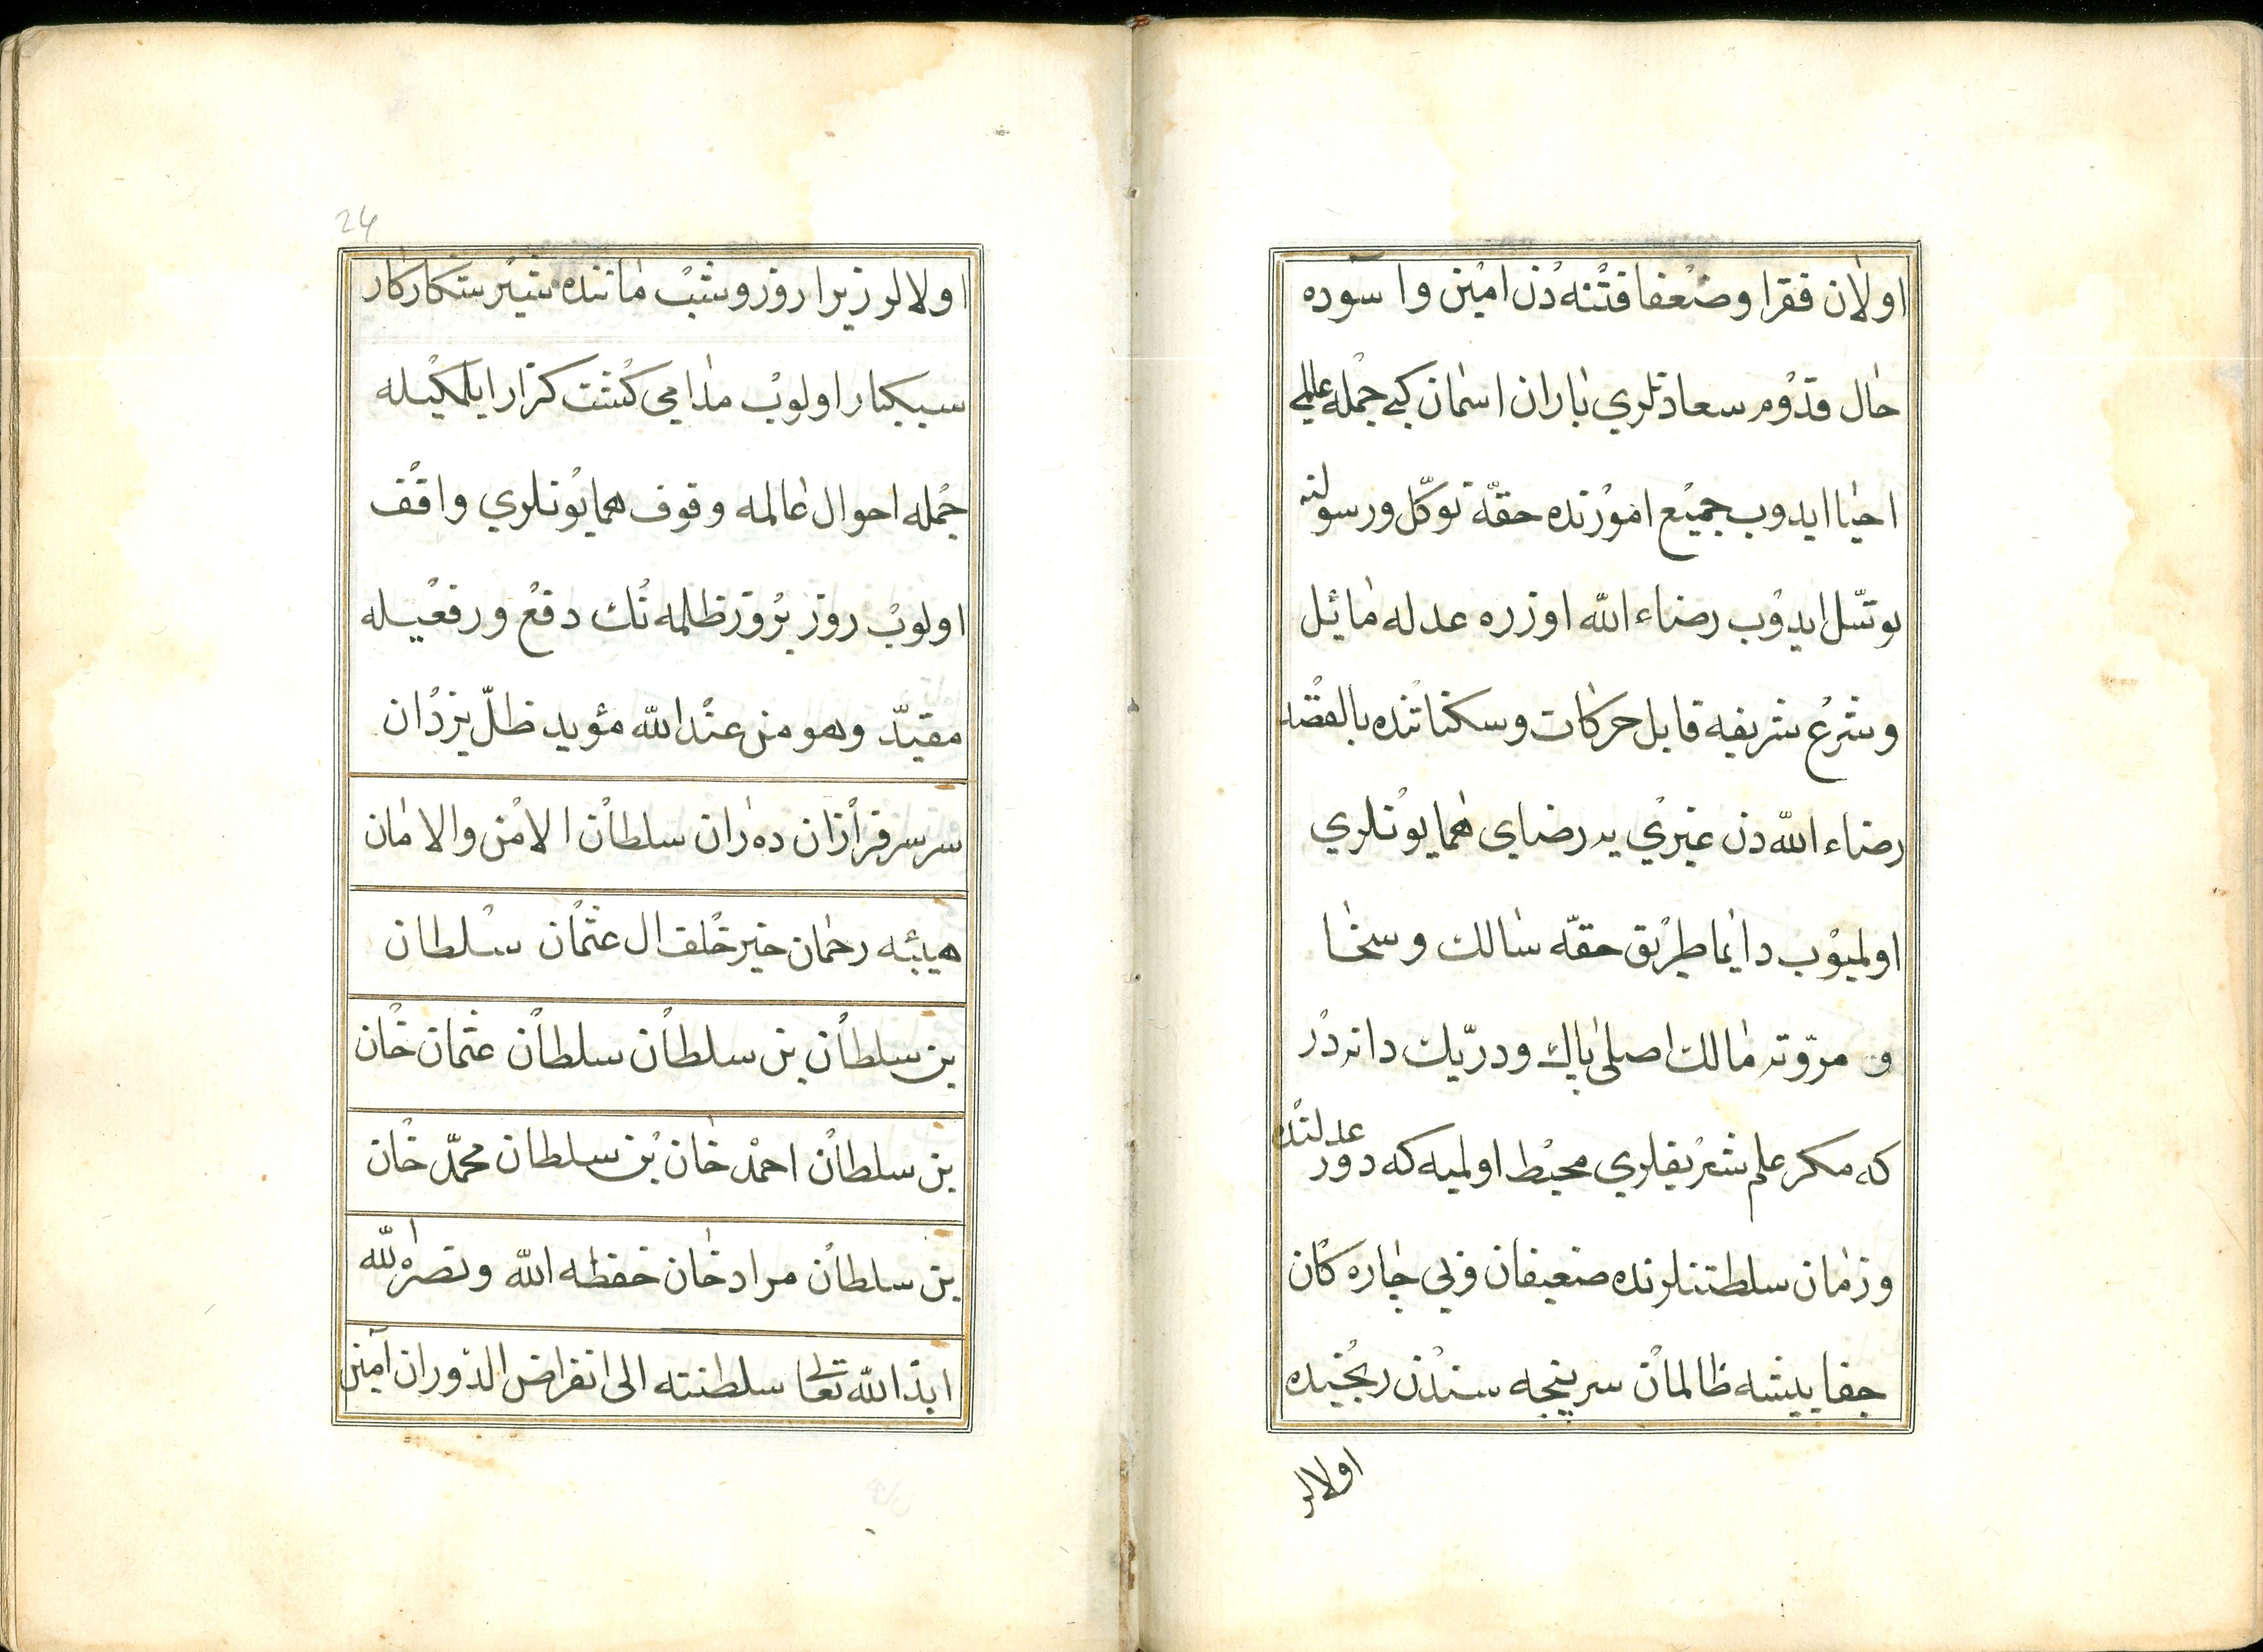 اولان فقرا وضعفا فتنه دن امین و اسوده
حال قدوم سعادتلري باران اسمان كبی جمله عالمی
احیا ایدوب جمیع امورنده حقه توكّل ورسولنه
توسّل ایدوب رضاء الله اوزره عدله مائل
وشرع شریفه قابل حركات وسكناتنده بالقصه
رضاء الله دن غیري یه رضاي همایونلري
اولمیوب دایما طریق حقه سالك و سخا
و مروّته مالك اصلی پاك ودرّیك دانه در
كه مكر علم شریفلري محیط اولمیه كه دور عدلتنده
وزمان سلطنتلرنده ضعیفان وبی چاره كان
جفا پیشه ظالمان سرپنجه سندن رنجیده
اولالر
24
اولالر زیرا روز وشب ماننده شیر ستكاركار
سبكبار اولوب مدامی كشت كزار ایلمكیله
جمله احوال عالمه وقوف همایونلري واقف
اولوب روز بروز ظلمه نك دفع ورفعیله
مقیّد وهو من عند الله مؤید ظلّ یزدان
سر سرفرازان دهران سلطان الامن والامان
هیبه رحمان خیر خلف ال عثمان سلطان
بن سلطان بن سلطان سلطان عثمان خان
بن سلطان احمد خان بن سلطان محمّد خان
بن سلطان مراد خان حفظه الله ونصره الله
ابد الله تعالی سلطنته الی انقراض الدّوران آمین